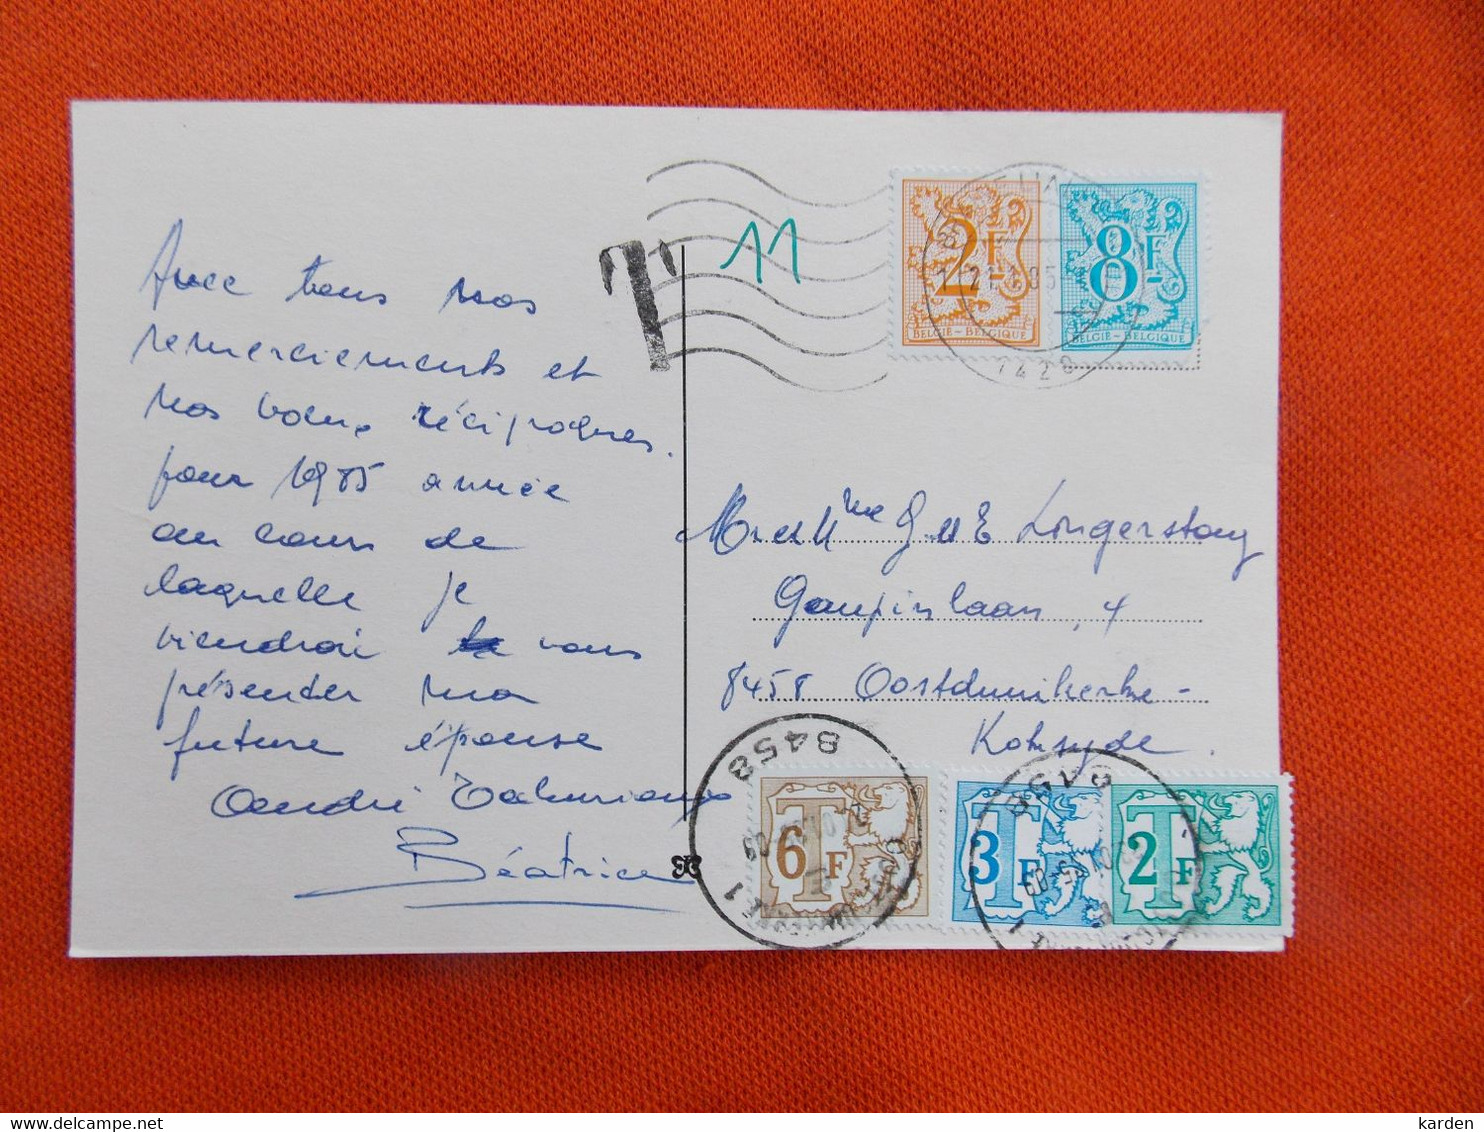 Avec tous nos
remerciements et
nos voeux réciproques
pour 1985 année
au cours de
laquelle je
viendrai vous
présenter ma
future épouse
André
Béatrice
T
11
2F
BELGIË - BELGIQUE
8F
BELGIË - BELGIQUE
1428
Mr et Mme G et E Longerstay
Goupinlaan, 4
8458 Oostduinkerke -
Koksyde
8458
6 T F
1
3 T F
8458
2 T F
1
delcampe.net
karden